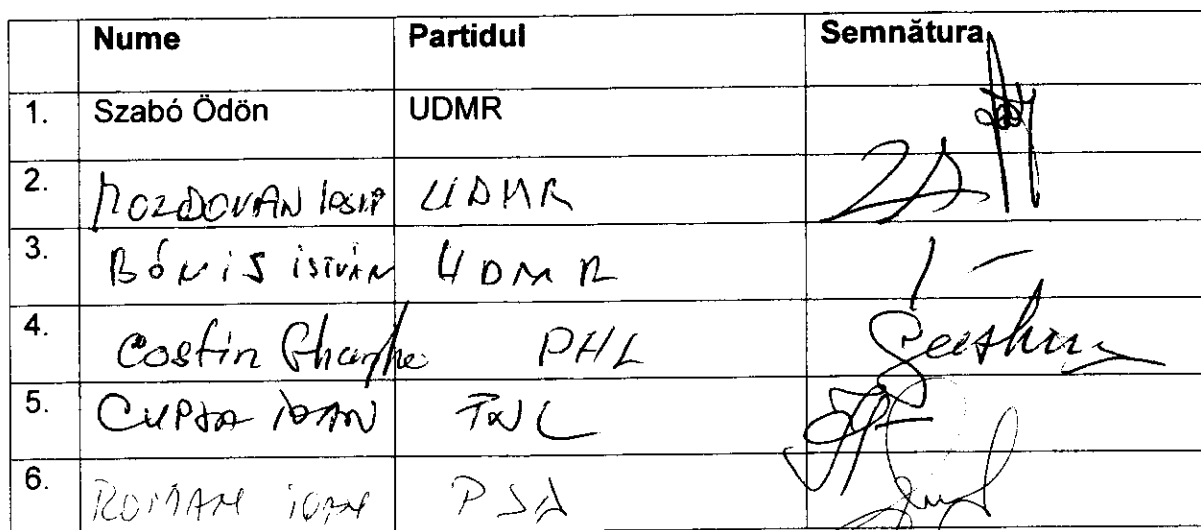 Nume Partidul Semnătura
1. Szabó Ödön UDMR
2. MOZDOVAN IOSIF UDMR
3. BÓNIS ISTVÁN UDMR
4. Costin Gheorghe PNL
5. CUPȘA IOAN PNL
6. ROMAN IOAN PSD